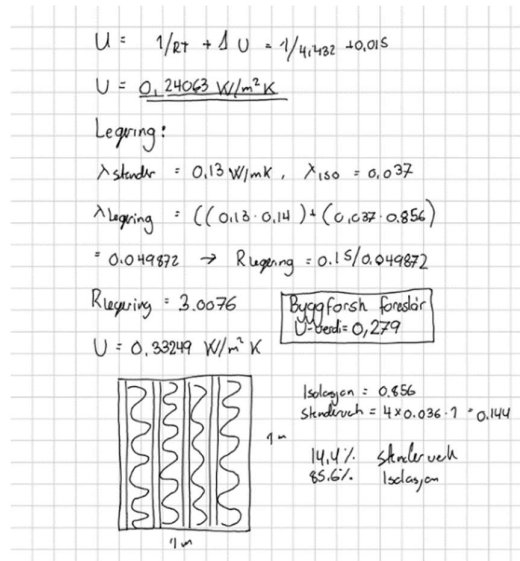 U = 1/RT + Δ U = 1/4,432 +0,015
U = 0,24063 W/m²K
Legering:
λ stender = 0,13 W/mK, λ iso = 0,037
λ Legering = ((0,13 · 0,14) + (0,037 · 0.856)
= 0.049872 → R legering = 0.15/0.049872
R legering = 3.0076
Byggforsk foreslår
U-verdi = 0,279
U = 0,33249 W/m² K
Isolasjon = 0.856
Stenderverk = 4 x 0.036 · 1 = 0.144
1 m
14,4% stenderverk
85.6% Isolasjon
1 m